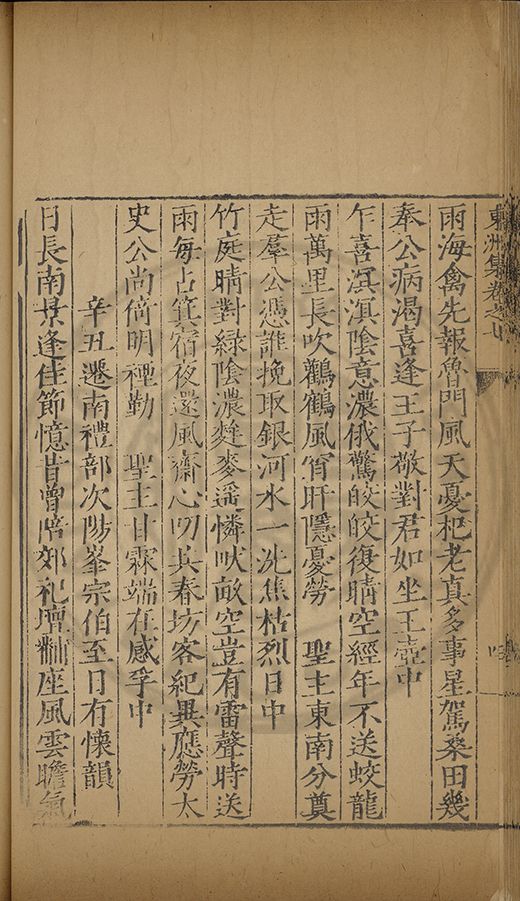 東洲集卷之
雨海禽先報魯門風天憂杞老真多事星駕桑田幾
奉公病渴喜逢王子敬對君如坐玉壺中
乍喜溟溟陰意濃俄驚皎皎復晴空經年不送蛟龍
雨萬里長吹鸛鶴風宵旰隱憂勞　聖主東南分奠
走羣公憑誰挽取銀河水一洗焦枯烈日中
竹庭晴對綠陰濃麰麥遥憐畎畝空豈有雷聲時送
雨每占箕宿夜還風齋心叨共春坊客紀異應勞太
史公尚倚明禋勤　聖主甘霖端在感孚中
辛丑遷南禮部次防峯宗伯至日有懷韻
日長南景逢佳節憶昔曾陪郊祀壇黼座風雲瞻氣